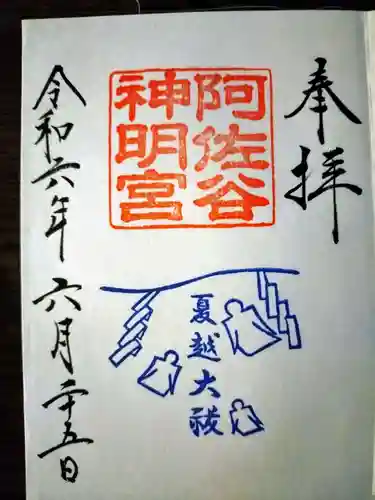 奉拝
阿佐谷
神明宮
夏越大祓
令和六年 六月二十五日